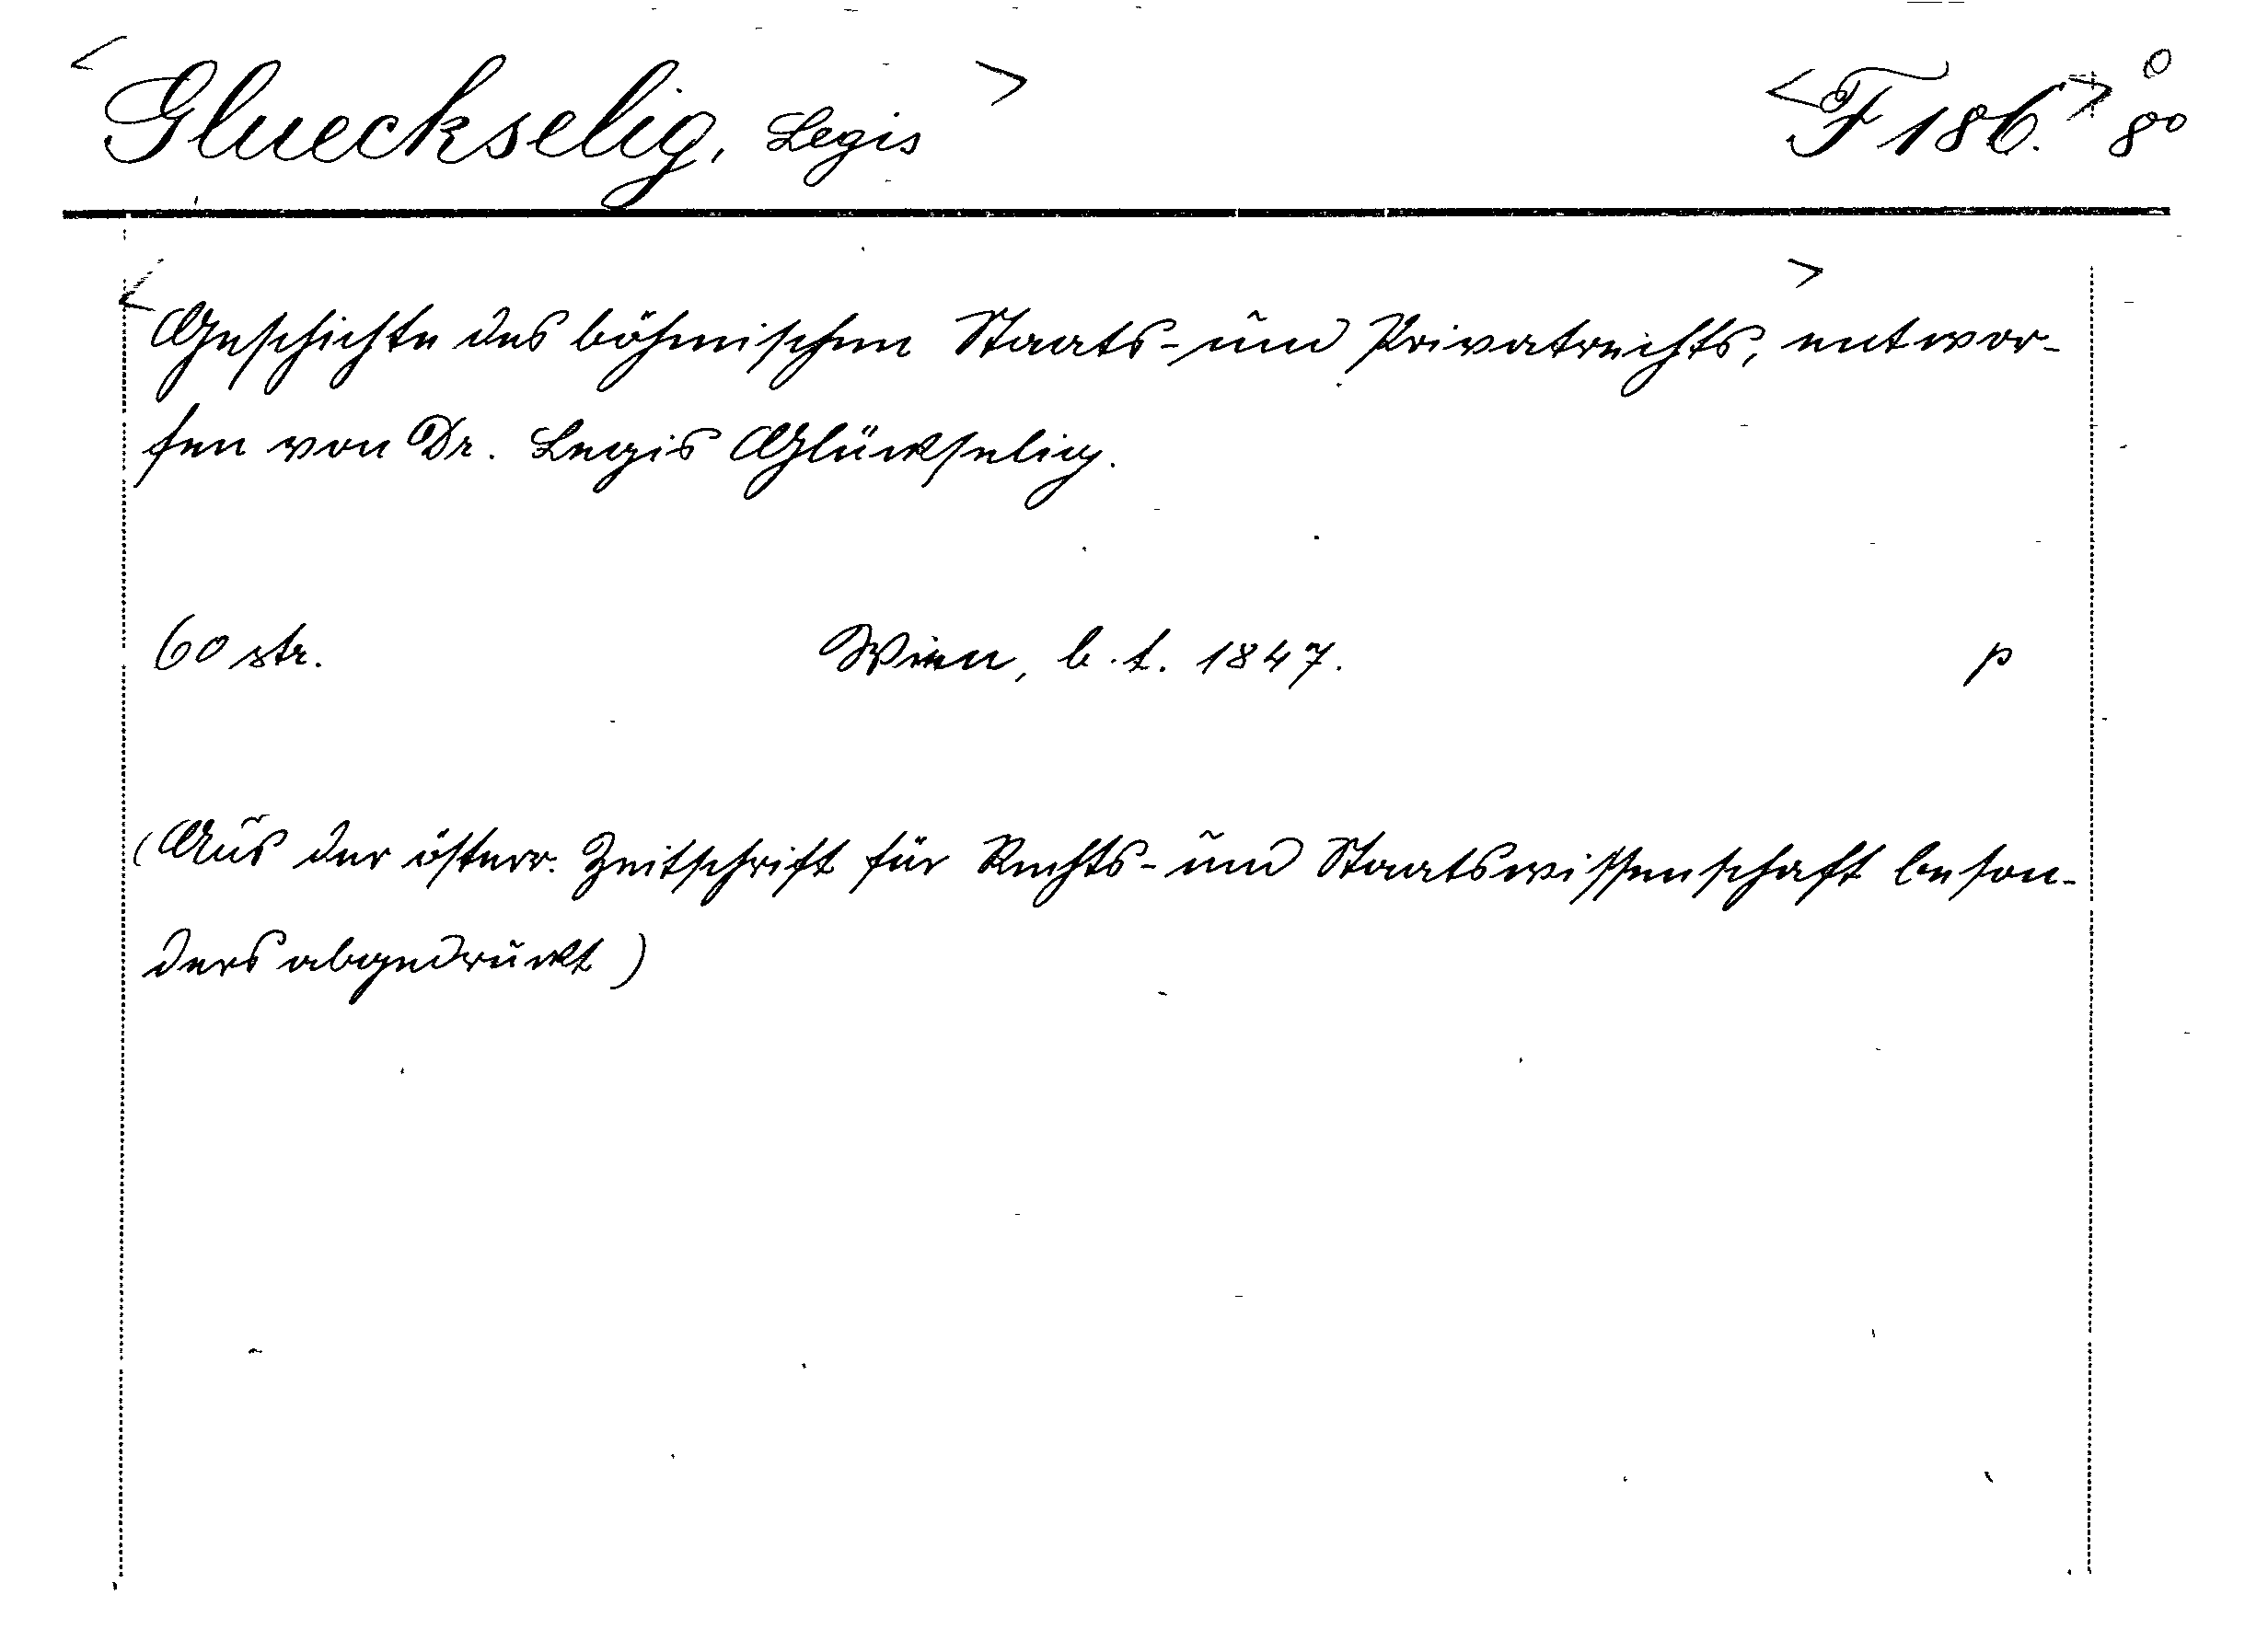 <Glueckselig, Legis> <F 186.> 8º
<Geschichte des böhmischen Staats- und Privatrechts,> entwor-
fen von Dr. Legis Glückselig.
60 str. Wien, b. t. 1847. p
(Aus der österr. Zeitschrift für Rechts- und Staatswissenschaft beson-
ders abgedruckt)